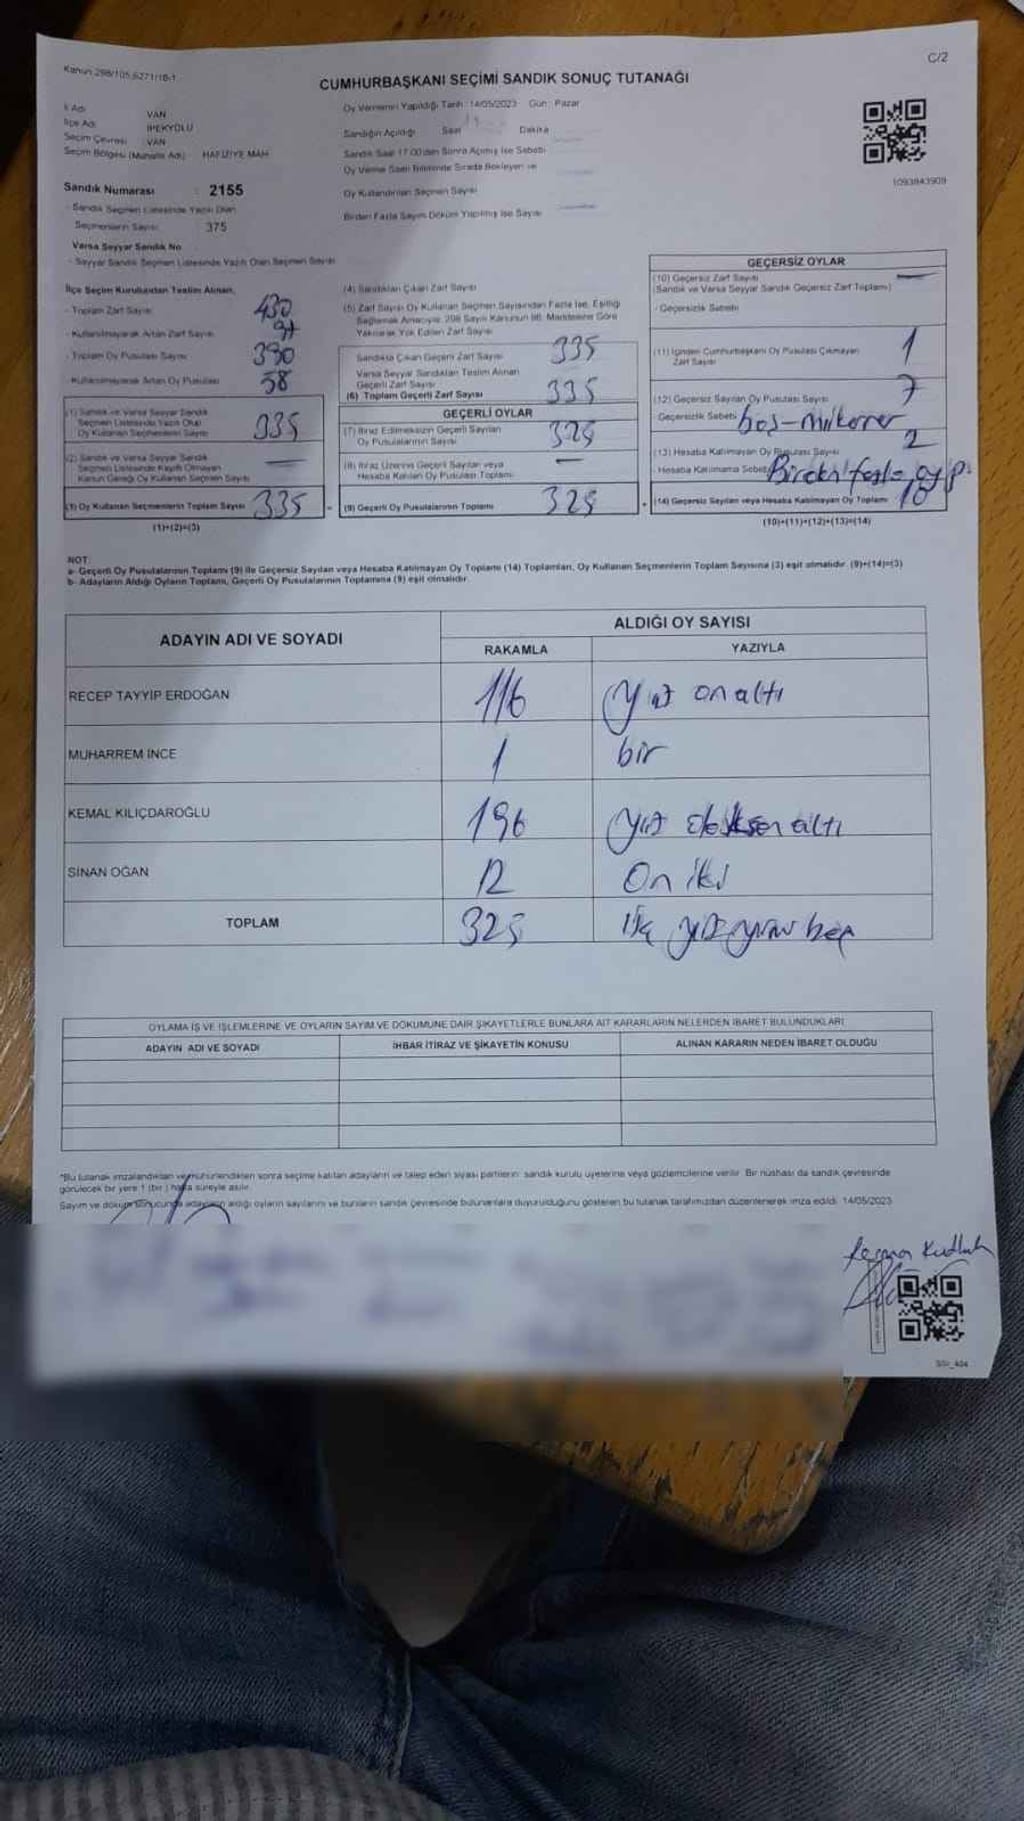 Kanun 298/105,6271/18-1
C/2
CUMHURBAŞKANI SEÇİMİ SANDIK SONUÇ TUTANAĞI
İl Adı VAN
İlçe Adı İPEKYOLU
Seçim Çevresi VAN
Seçim Bölgesi (Muhalle Adı) HAFIZİYE MAH
Sandık Numarası : 2155
- Sandık Seçmen Listesinde Yazılı Olan
Seçmenlerin Sayısı 375
Varsa Seyyar Sandık No
- Seyyar Sandık Seçmen Listesinde Yazılı Olan Seçmen Sayısı
Oy Vermenin Yapıldığı Tarih : 14/05/2023 Gün : Pazar
Sandığın Açıldığı Saat Dakika
Sandık Saat 17.00'den Sonra Açılmış İse Sebebi
Oy Verme Saati Bitiminde Sırada Bekleyen ve
Oy Kullandırılan Seçmen Sayısı
Birden Fazla Sayım Döküm Yapılmış İse Sayısı
1093843909
İlçe Seçim Kurulundan Teslim Alınan;
- Toplam Zarf Sayısı 430
- Kullanılmayarak Artan Zarf Sayısı
- Toplam Oy Pusulası Sayısı 390
- Kullanılmayarak Artan Oy Pusulası 58
(1) Sandık ve Varsa Seyyar Sandık
Seçmen Listesinde Yazılı Olup
Oy Kullanan Seçmenlerin Sayısı 335
(2) Sandık ve Varsa Seyyar Sandık
Seçmen Listesinde Kayıtlı Olmayan
Kanun Gereği Oy Kullanan Seçmen Sayısı —
(3) Oy Kullanan Seçmenlerin Toplam Sayısı 335
(1)+(2)=(3)
(4) Sandıktan Çıkan Zarf Sayısı
(5) Zarf Sayısı Oy Kullanan Seçmen Sayısından Fazla İse, Eşitliği
Sağlamak Amacıyla, 298 Sayılı Kanunun 98. Maddesine Göre
Yakılarak Yok Edilen Zarf Sayısı
Sandıkta Çıkan Geçerli Zarf Sayısı 335
Varsa Seyyar Sandıktan Teslim Alınan
Geçerli Zarf Sayısı
(6) Toplam Geçerli Zarf Sayısı 335
GEÇERLİ OYLAR
(7) İtiraz Edilmeksizin Geçerli Sayılan
Oy Pusulalarının Sayısı 325
(8) İtiraz Üzerine Geçerli Sayılan veya
Hesaba Katılan Oy Pusulası Toplamı —
(9) Geçerli Oy Pusulalarının Toplamı 325
GEÇERSİZ OYLAR
(10) Geçersiz Zarf Sayısı —
(Sandık ve Varsa Seyyar Sandık Geçersiz Zarf Toplamı)
- Geçersizlik Sebebi
(11) İçinden Cumhurbaşkanı Oy Pusulası Çıkmayan
Zarf Sayısı 1
(12) Geçersiz Sayılan Oy Pusulası Sayısı 7
Geçersizlik Sebebi boş-mükerrer
(13) Hesaba Katılmayan Oy Pusulası Sayısı 2
- Hesaba Katılmama Sebebi Birden fazla oy p.
(14) Geçersiz Sayılan veya Hesaba Katılmayan Oy Toplamı 10
(10)+(11)+(12)+(13)=(14)
NOT:
a- Geçerli Oy Pusulalarının Toplamı (9) ile Geçersiz Sayılan veya Hesaba Katılmayan Oy Toplamı (14) Toplamları, Oy Kullanan Seçmenlerin Toplam Sayısına (3) eşit olmalıdır. (9)+(14)=(3)
b- Adayların Aldığı Oyların Toplamı, Geçerli Oy Pusulalarının Toplamına (9) eşit olmalıdır.
ADAYIN ADI VE SOYADI ALDIĞI OY SAYISI
RAKAMLA YAZIYLA
RECEP TAYYİP ERDOĞAN 116 Yüz on altı
MUHARREM İNCE 1 bir
KEMAL KILIÇDAROĞLU 196 Yüz doksan altı
SİNAN OĞAN 12 On iki
TOPLAM 325 Üç yüz yirmi beş
OYLAMA İŞ VE İŞLEMLERİNE VE OYLARIN SAYIM VE DÖKÜMÜNE DAİR ŞİKAYETLERLE BUNLARA AİT KARARLARIN NELERDEN İBARET BULUNDUKLARI
ADAYIN ADI VE SOYADI İHBAR İTİRAZ VE ŞİKAYETİN KONUSU ALINAN KARARIN NEDEN İBARET OLDUĞU
*Bu tutanak imzalandıktan ve mühürlendikten sonra seçime katılan adayların ve talep eden siyasi partilerin sandık kurulu üyelerine veya gözlemcilerine verilir. Bir nüshası da sandık çevresinde
görülecek bir yere 1 (bir) hafta süreyle asılır.
Sayım ve döküm sonucunda adayların aldığı oyların sayılarını ve bunların sandık çevresinde bulunanlara duyurulduğunu gösteren bu tutanak tarafımızdan düzenlenerek imza edildi. 14/05/2023